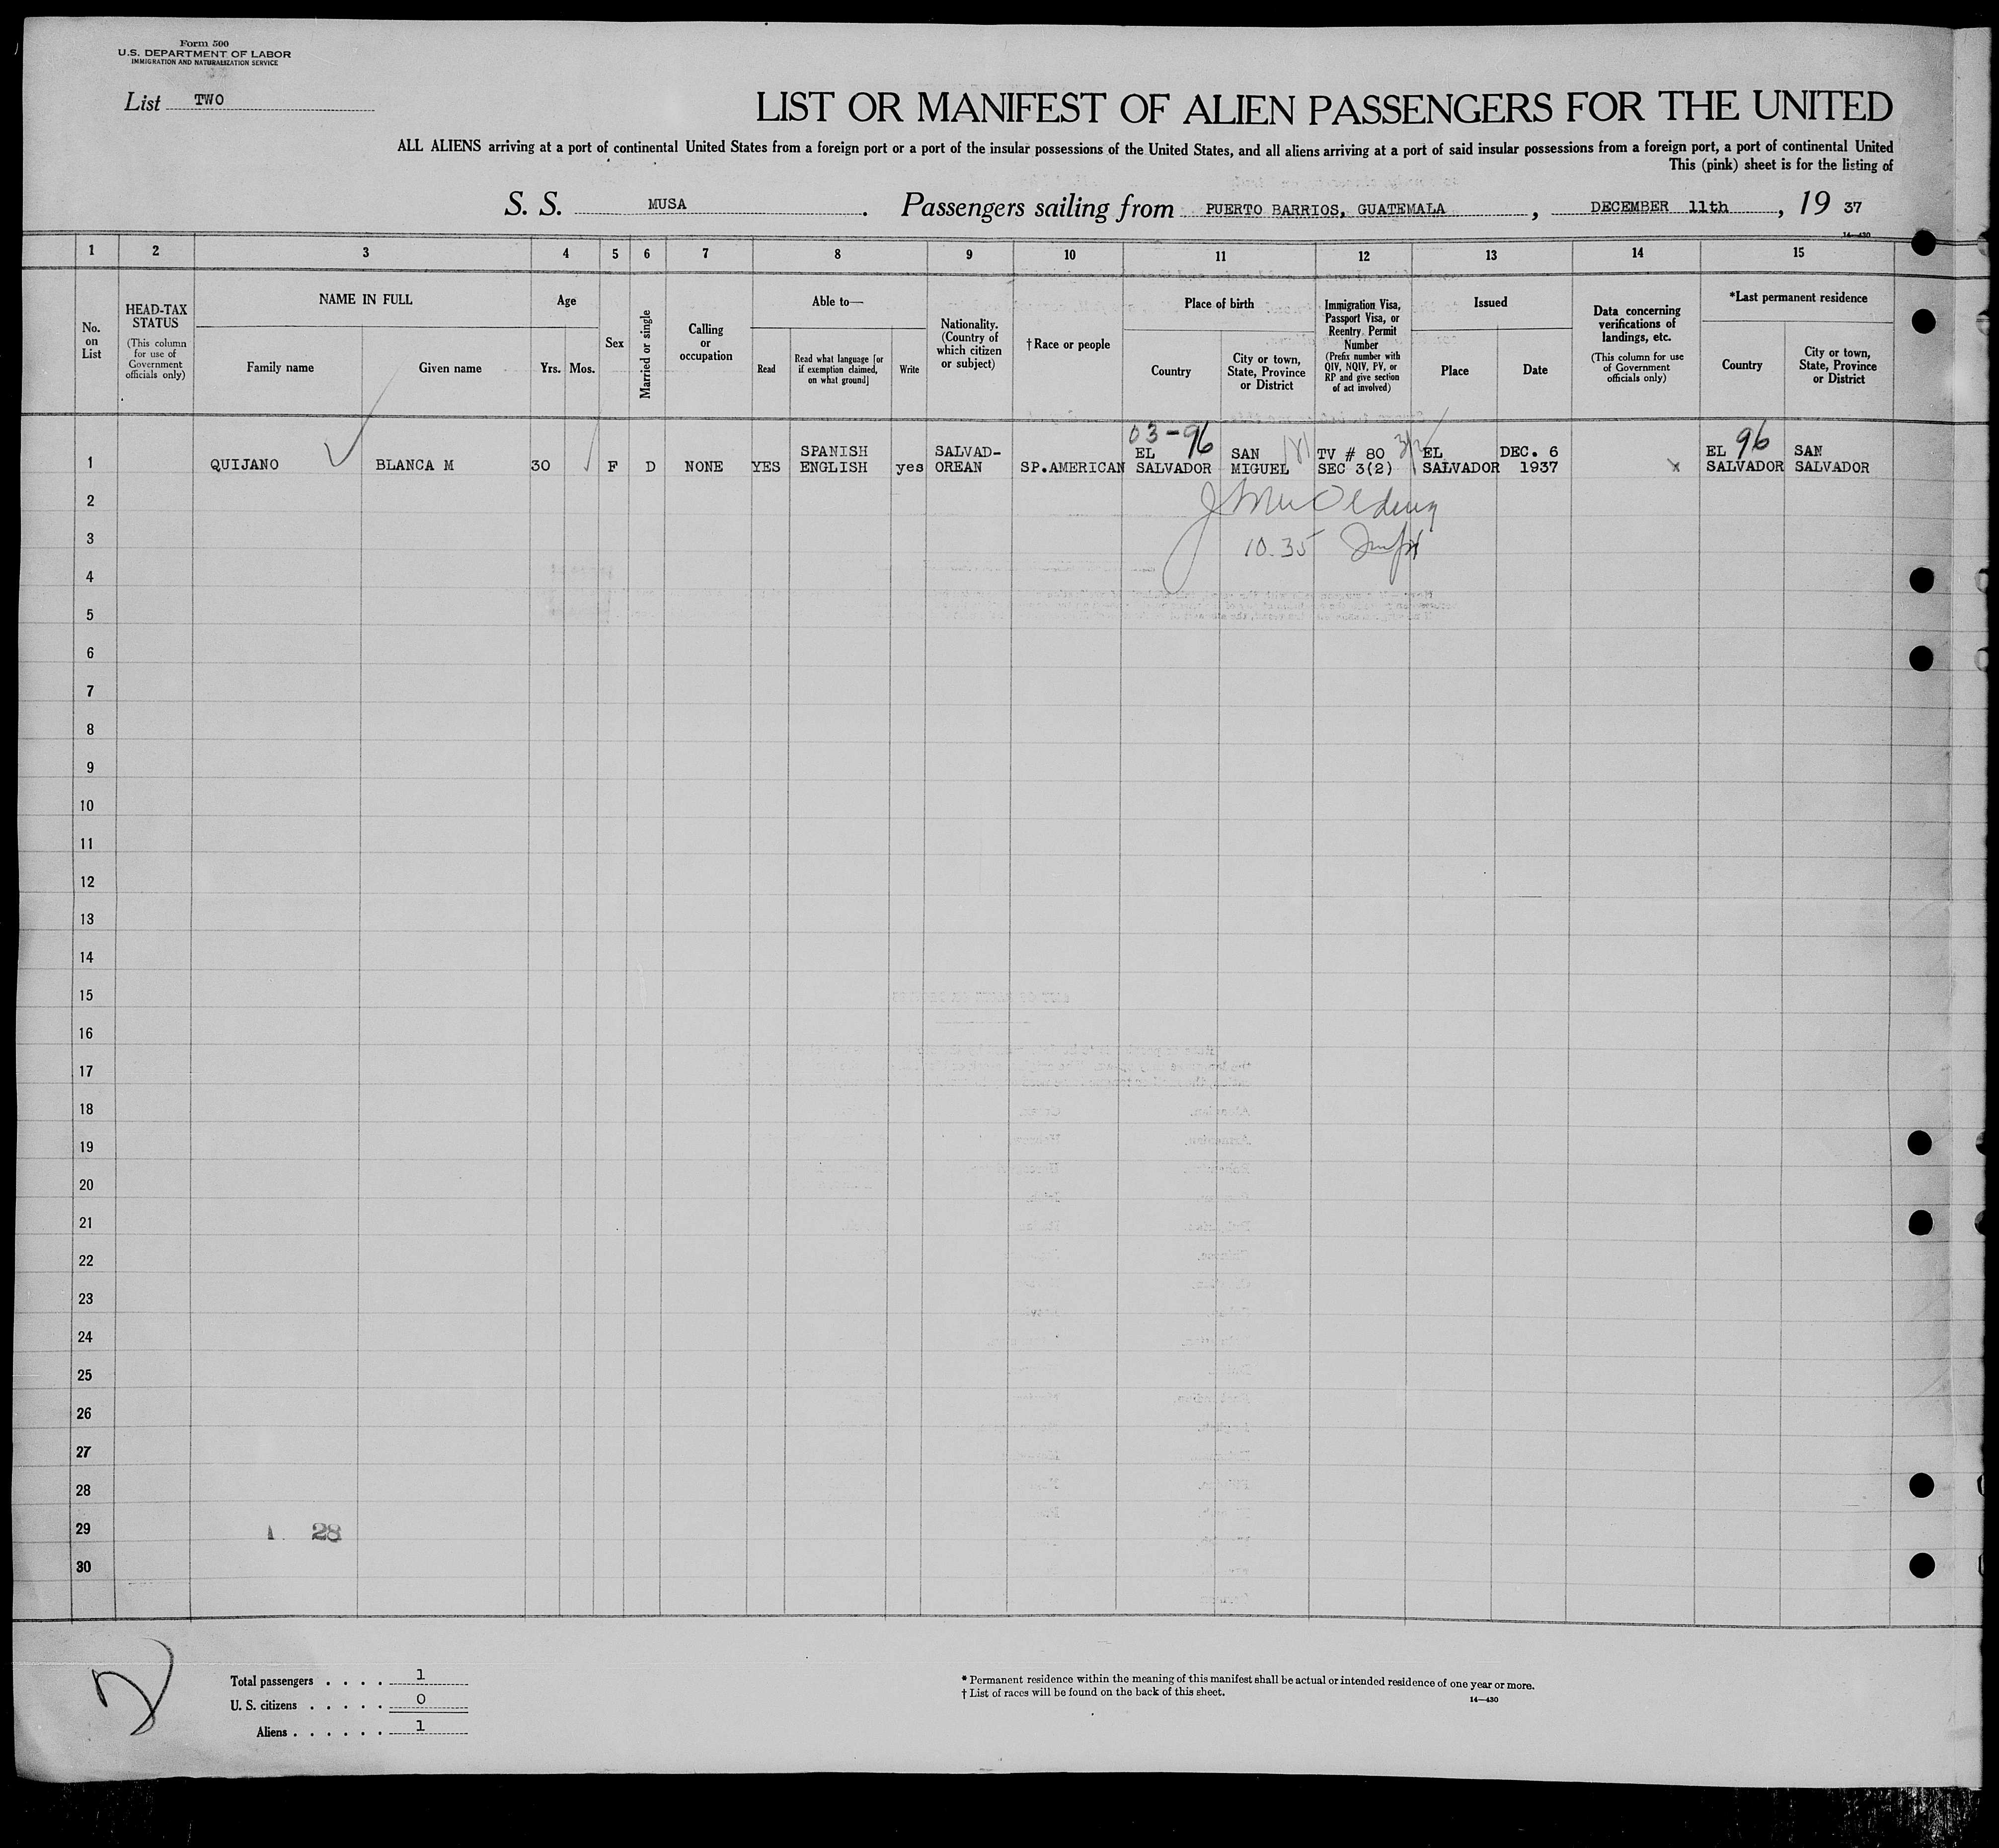 Form 500
U.S. DEPARTMENT OF LABOR
IMMIGRATION AND NATURALIZATION SERVICE
List TWO
LIST OR MANIFEST OF ALIEN PASSENGERS FOR THE UNITED
ALL ALIENS arriving at a port of continental United States from a foreign port or a port of the insular possessions of the United States, and all aliens arriving at a port of said insular possessions from a foreign port, a port of continental United
This (pink) sheet is for the listing of
S. S. MUSA. Passengers sailing from PUERTO BARRIOS, GUATEMALA, DECEMBER 11th, 19 37
14—430
1 2 3 4 5 6 7 8 9 10 11 12 13 14 15
No. on List
HEAD-TAX STATUS
(This column for use of Government officials only)
NAME IN FULL
Family name
Given name
Age
Yrs. Mos.
Sex
Married or single
Calling or occupation
Able to—
Read
Read what language [or if exemption claimed, on what ground]
Write
Nationality. (Country of which citizen or subject)
†Race or people
Place of birth
Country
City or town, State, Province or District
Immigration Visa, Passport Visa, or Reentry Permit Number
(Prefix number with QIV, NQIV, PV, or RP and give section of act involved)
Issued
Place
Date
Data concerning verifications of landings, etc.
(This column for use of Government officials only)
*Last permanent residence
Country
City or town, State, Province or District
03-96 96
SPANISH SALVAD- EL SAN TV # 80 EL DEC. 6 EL SAN
1 QUIJANO BLANCA M 30 F D NONE YES ENGLISH yes OREAN SP.AMERICAN SALVADOR MIGUEL SEC 3(2) SALVADOR 1937 x SALVADOR SALVADOR
2
3 10.35
4
5
6
7
8
9
10
11
12
13
14
15
16
17
18
19
20
21
22
23
24
25
26
27
28
29 28
30
Total passengers . . . . 1
U. S. citizens . . . . . 0
Aliens . . . . . . 1
* Permanent residence within the meaning of this manifest shall be actual or intended residence of one year or more.
† List of races will be found on the back of this sheet.
14—430